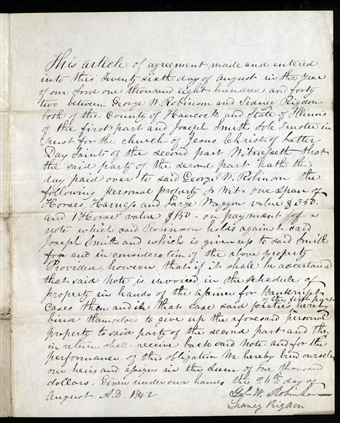 This article of agreement made and entered
into this twenty sixth day of August in the year
of our Lord one thousand eight hundred and forty
two between George W. Robinson and Sidney Rigdon
both of the County of Hancock and State of Illinois
of the first part and Joseph Smith Sole Trustee in
Trust for the church of Jesus Christ of Latter
Day Saints of the second part Witnesseth that
the said party of the second part hath this
day paid over to said George W. Robinson the
following personal property to wit, one Span of
Horses Harness and Large Waggon value $250.
and 1 Horse value $150 - on payment of a
note which said Robinson holds against said
Joseph Smith and which is given up to said Smith
for and in consideration of the above property
Provided however that if it shall be ascertained
that said Note is invoiced in the schedule of
property in hands of the assignee for bankruptcy
cases then and in that case said parties of the first part
bind themselves to give up the aforesaid personal
property to said party of the second part and they
in return shall receive back said Note and for the
performance of this obligation We hereby bind ourselves
our heirs and assigns in the Sum of one thousand
dollars. Given under our hands this 26th day of
August A.D. 1842 Geo W. Robinson
Sidney Rigdon